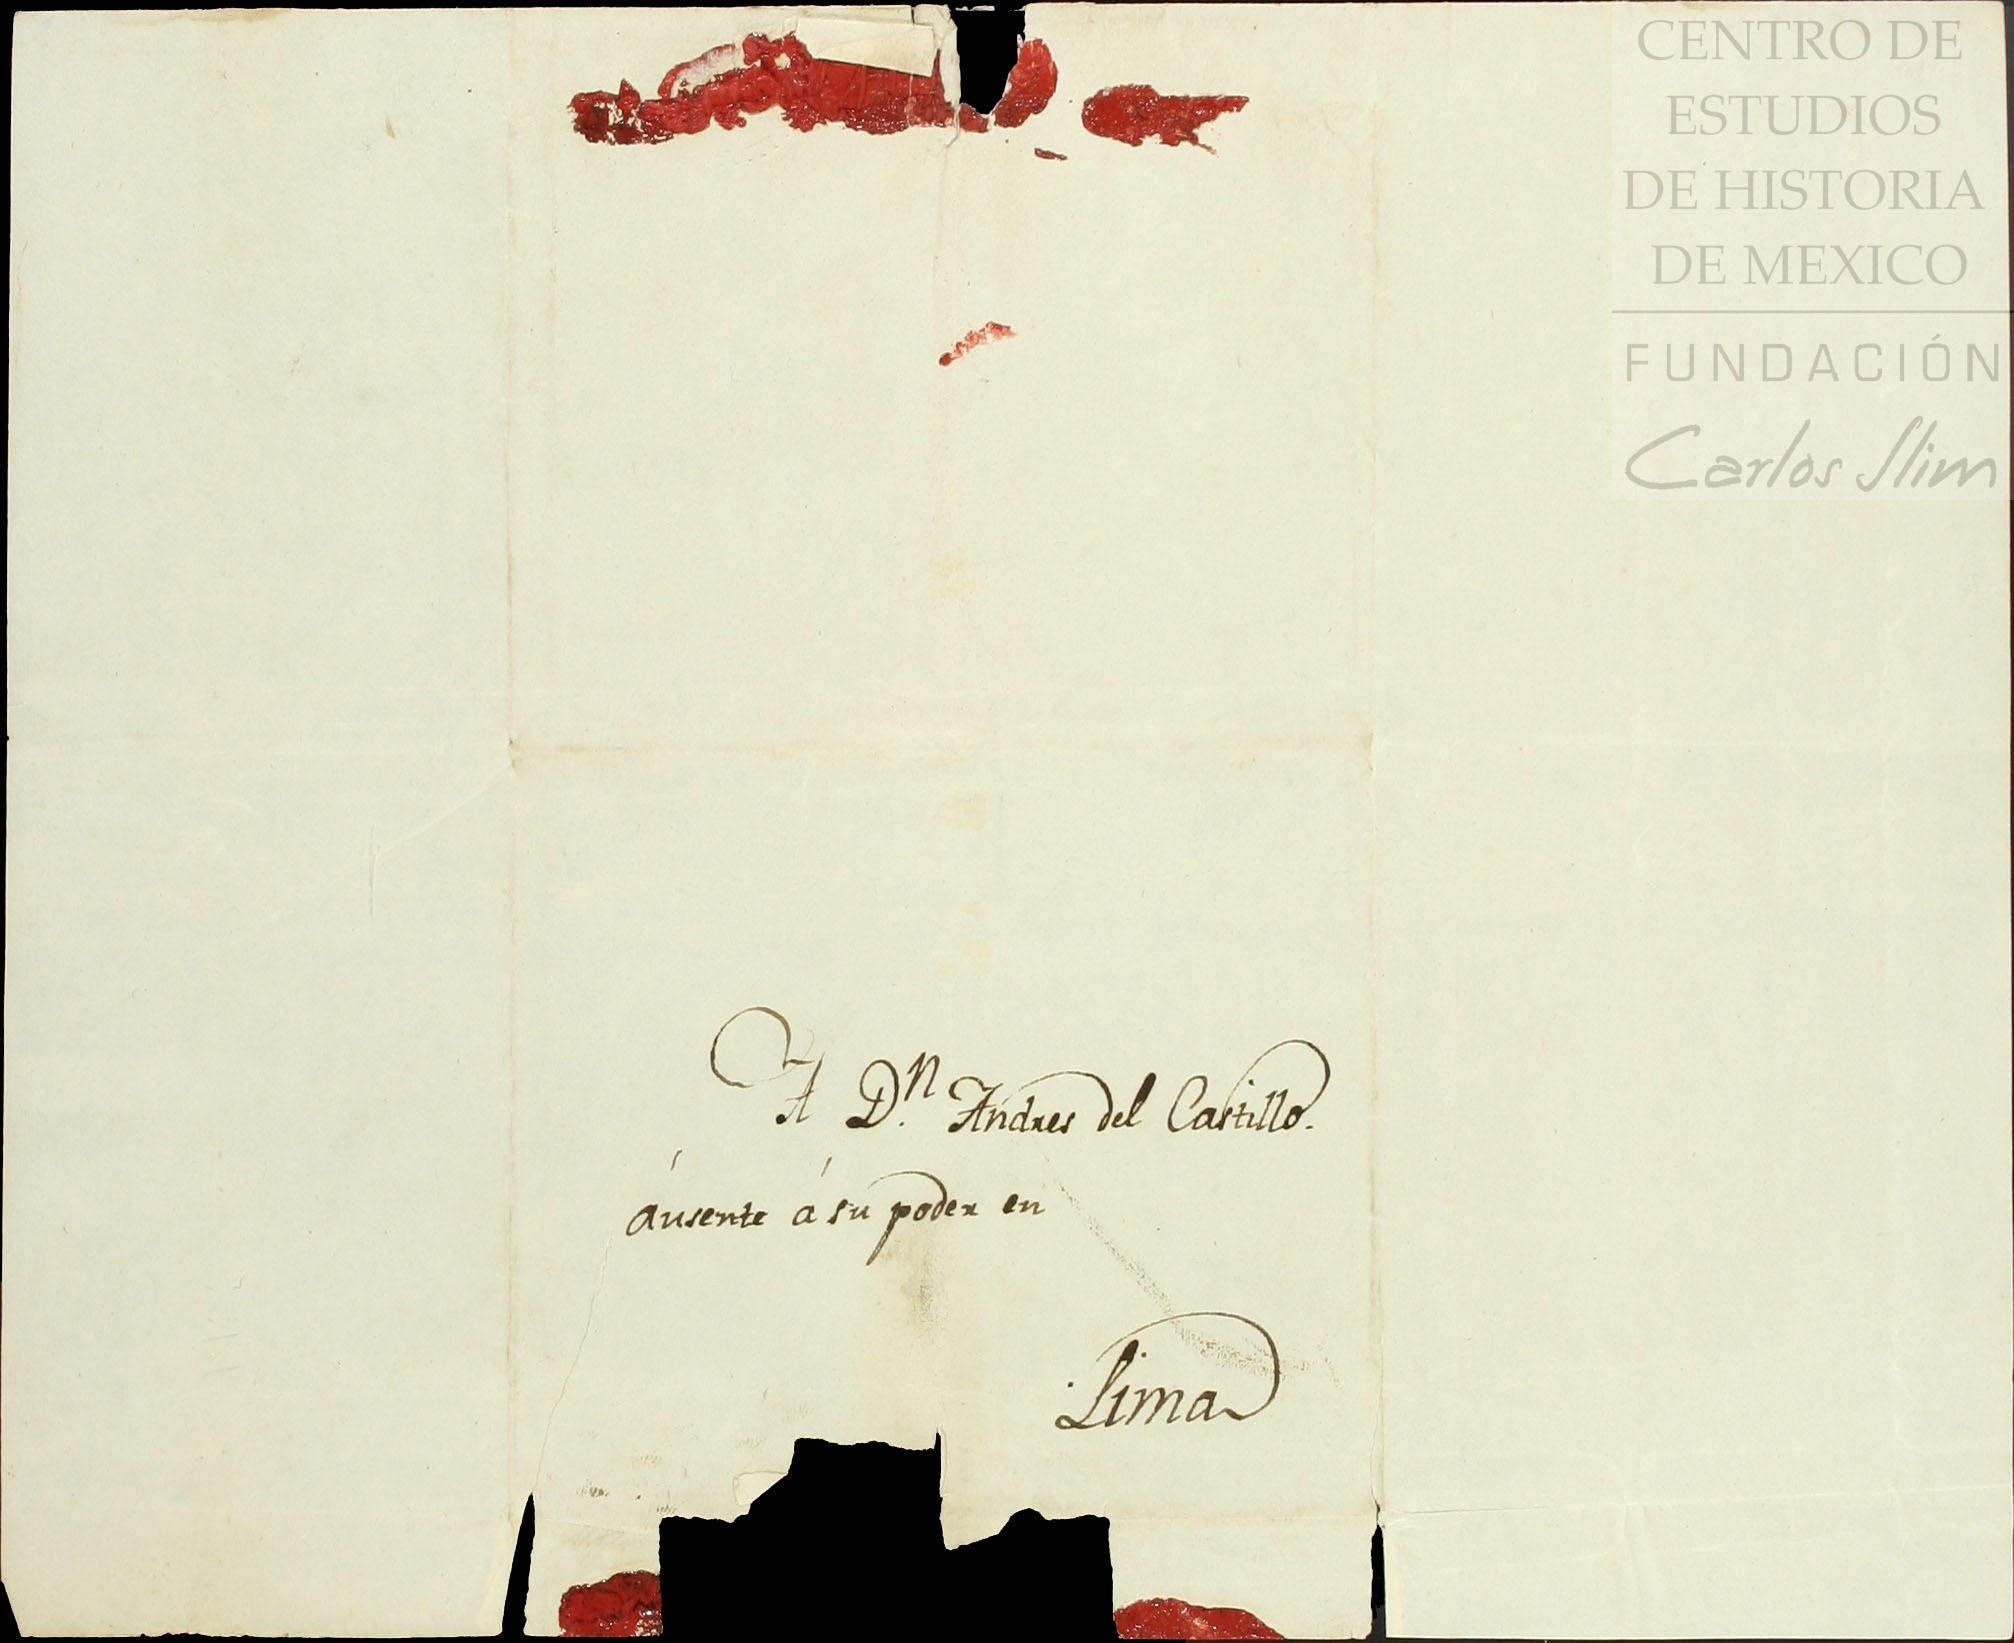 CENTRO DE
ESTUDIOS
DE HISTORIA
DE MEXICO
FUNDACIÓN
Carlos Slim
A D.ⁿ Andres del Castillo.
áusente á su poder en
Lima